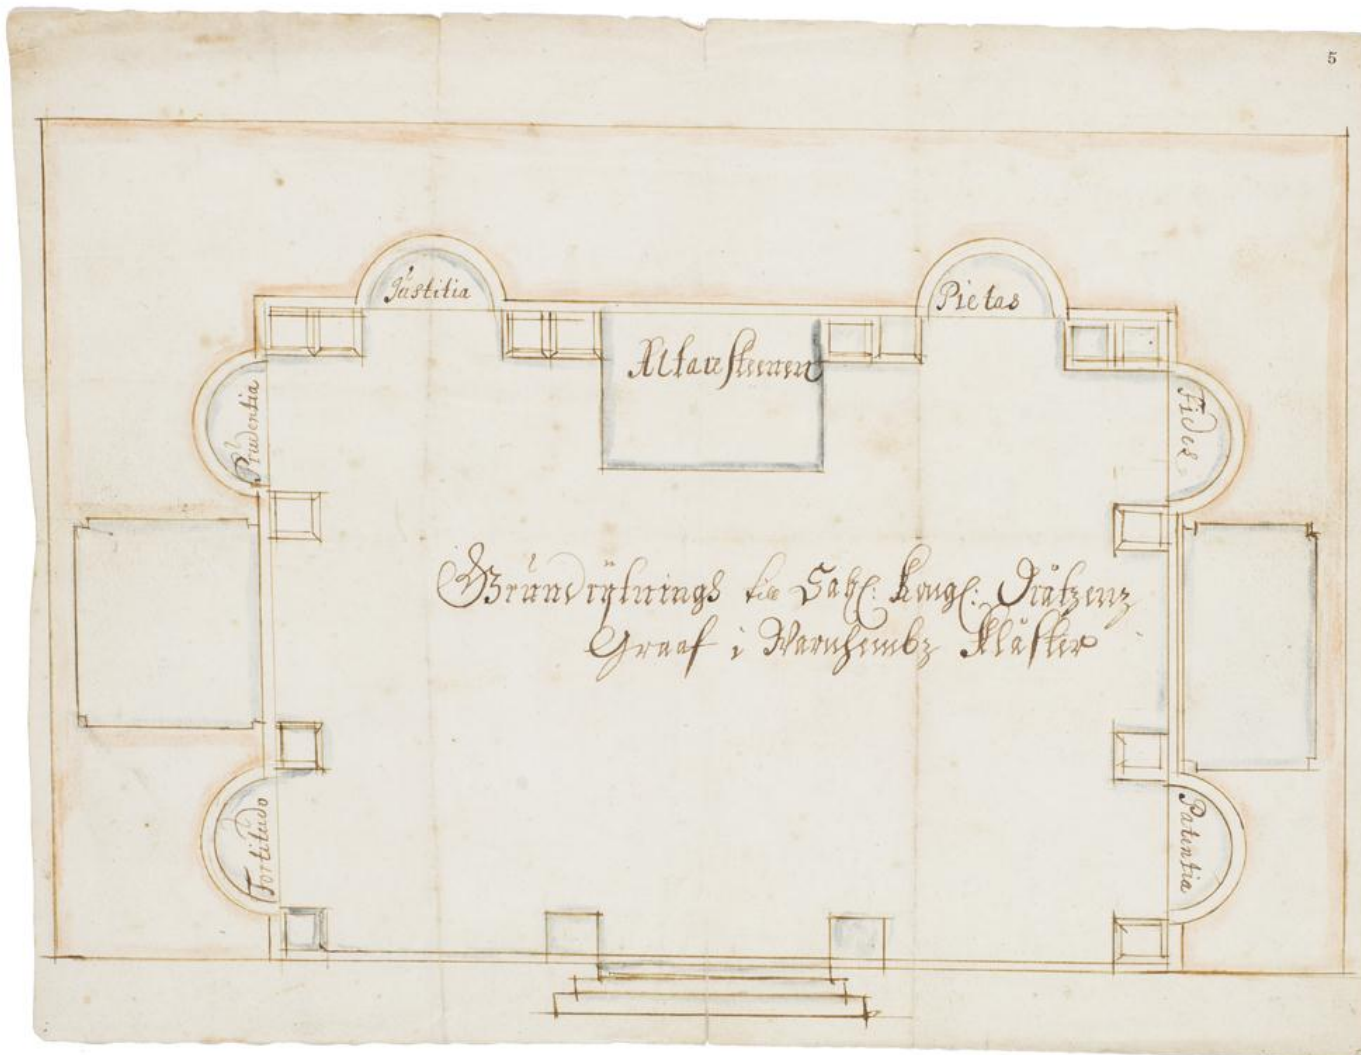 5
Justitia
Pietas
Altare steenen
Prudentia
Fides
Grundrijtnings till Sahl: Kongl: Drätzenz
Graaf i Warnhembz Kläster
Fortitudo
Patentia